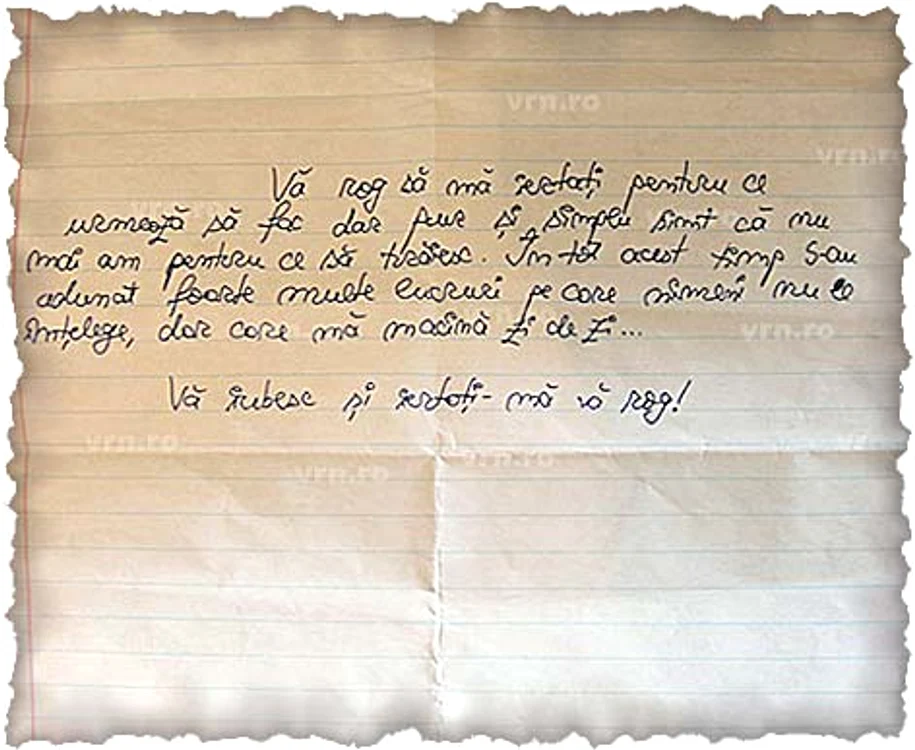 vrn.ro
vrn.ro
Vă rog să mă iertați pentru ce
vrn.ro
urmează să fac dar pur și simplu simt că nu
mai am pentru ce să trăiesc. În tot acest timp s-au
adunat foarte multe lucruri pe care nimeni nu le
înțelege, dar care mă macină zi de zi...
vrn.ro
Vă iubesc și iertați-mă vă rog!
vrn.ro
vrn.ro
vrn.ro
vrn.ro